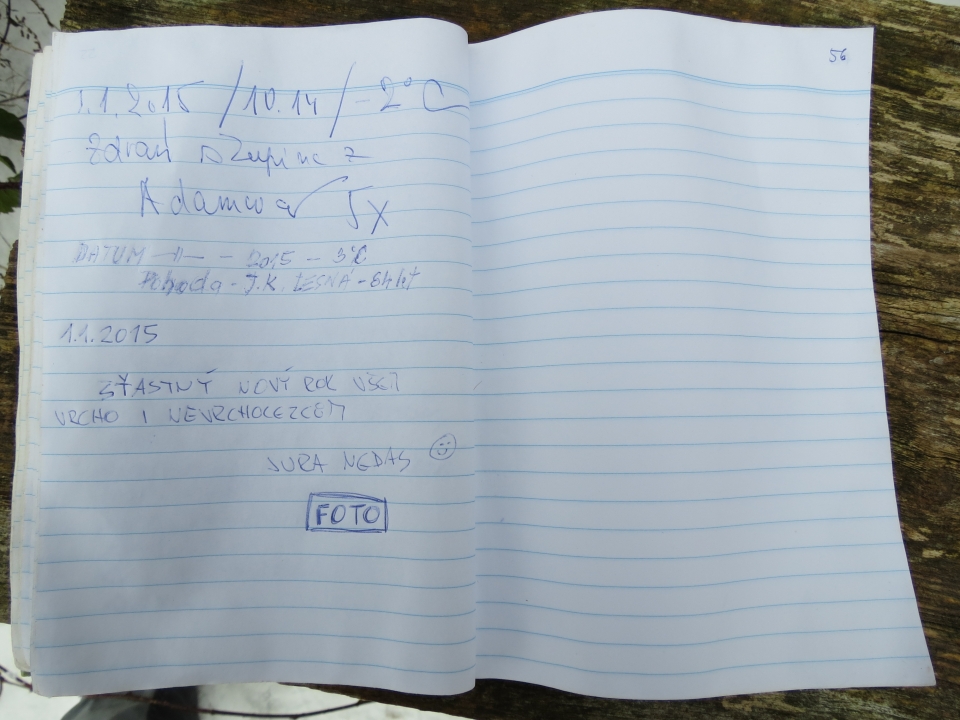 56
1.1.2015 / 10.14 / -2°C
Zdraví skupina z
Adamova 5x
DATUM -||- - 2015 - 3°C
Pohoda - J.K. LESNÁ -
1.1.2015
ŠŤASTNÝ NOVÝ ROK VŠEM
VRCHO I NEVRCHOLEZCEM
JURA NEDAS
FOTO